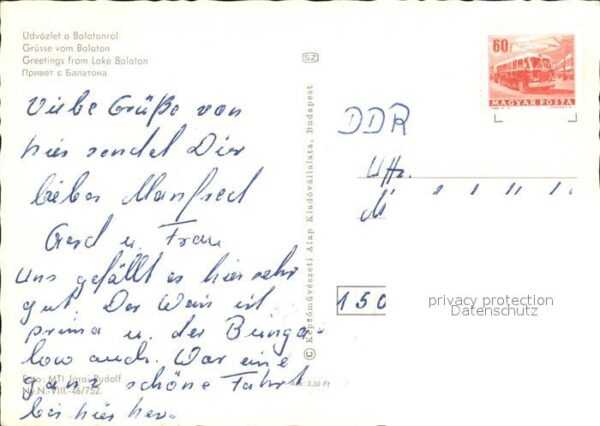 Üdvözlet a Balatonról
Grüsse vom Balaton
Greetings from Lake Balaton
Привет с Балатона
SZ
60f
MAGYAR POSTA
Viele Grüße von
hier sendet Dir
lieber Manfred
Gerd u. Frau
Uns gefällt es hier sehr
gut. Der Wein ist
prima u. der Bunga-
low auch. War eine
ganz schöne Fahrt
bis hier her.
Foto: MTI Járai Rudolf
N.N.-VIII.-46/752.
Ára: 3,50 Ft
© Képzőművészeti Alap Kiadóvállalata, Budapest
DDR
150
privacy protection
Datenschutz